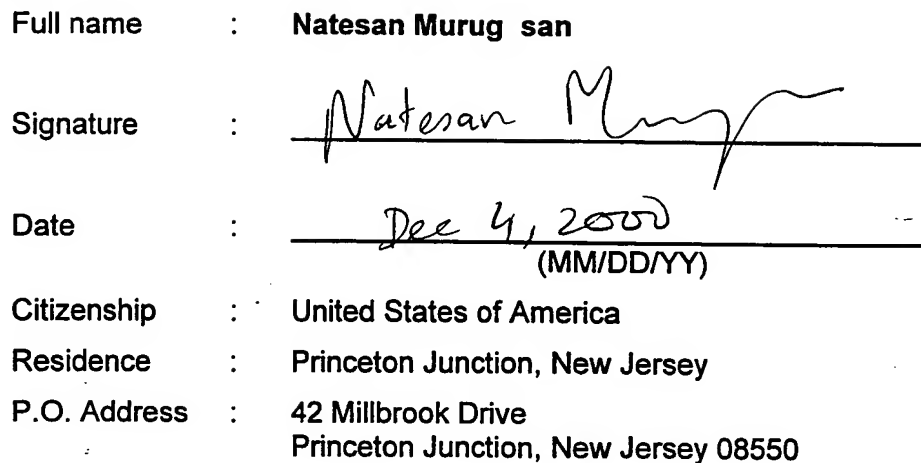 Full name : Natesan Murug san
Signature : Natesan
Date : Dec 4, 2000
(MM/DD/YY)
Citizenship : United States of America
Residence : Princeton Junction, New Jersey
P.O. Address : 42 Millbrook Drive
Princeton Junction, New Jersey 08550